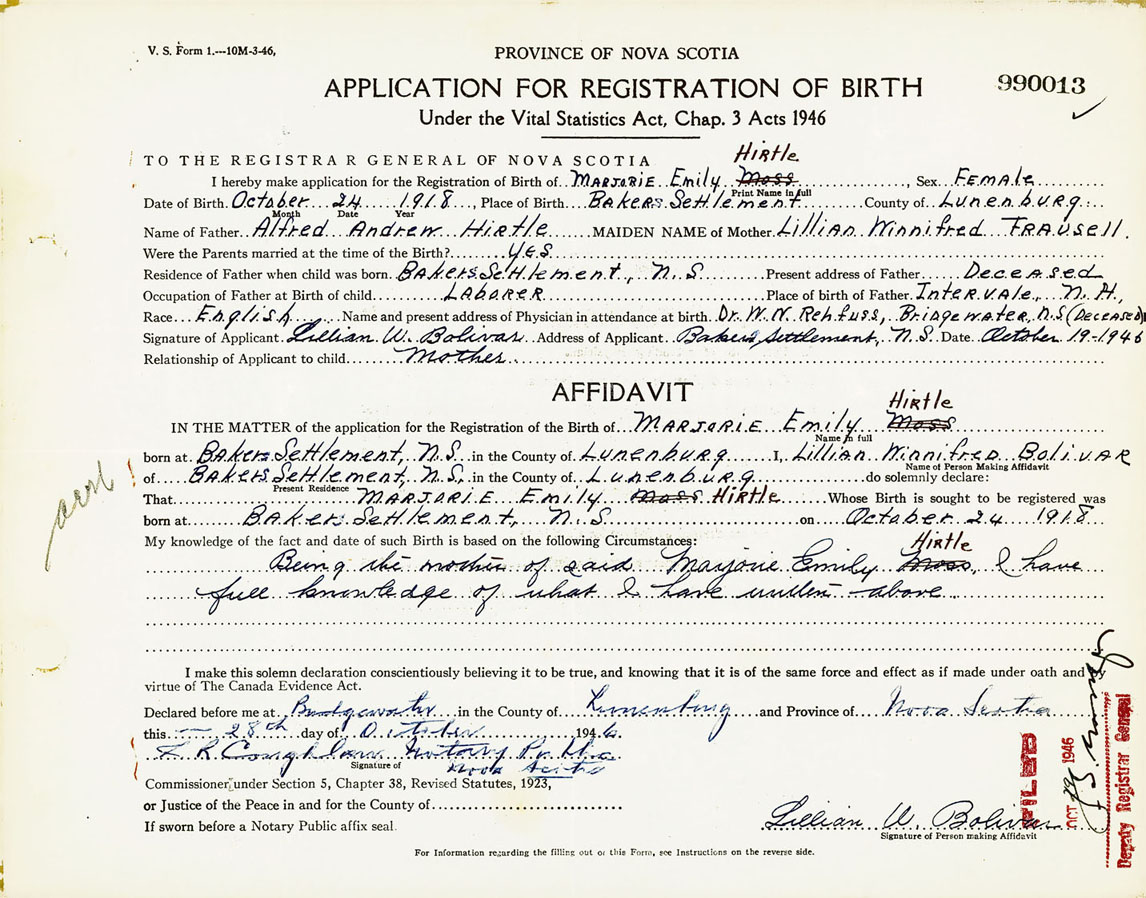 V. S. Form 1.---10M-3-46,
PROVINCE OF NOVA SCOTIA
APPLICATION FOR REGISTRATION OF BIRTH
990013
Under the Vital Statistics Act, Chap. 3 Acts 1946
TO THE REGISTRAR GENERAL OF NOVA SCOTIA
Hirtle
I hereby make application for the Registration of Birth of MARJORIE Emily Moss, Sex FEMAle
Print Name in full
Date of Birth October 24 1918, Place of Birth BAKERS SettlemenT County of LunenbuRg
Month Date Year
Name of Father Alfred Andrew Hirtle MAIDEN NAME of Mother Lillian Winnifred FRAUSell.
Were the Parents married at the time of the Birth? YES
Residence of Father when child was born BAKERS Settlement, N.S Present address of Father Deceased
Occupation of Father at Birth of child LABORER Place of birth of Father InterVAle, N.H,
Race English Name and present address of Physician in attendance at birth Dr. W.N Rehfuss, BRidgewater, N.S (Deceased)
Signature of Applicant Lillian W. Bolivar Address of Applicant Bakers Settlement, N.S. Date October 19-1946
Relationship of Applicant to child Mother
AFFIDAVIT
Hirtle
IN THE MATTER of the application for the Registration of the Birth of MARJORIE Emily Moss
Name in full
born at BAKERS Settlement, N.S. in the County of LunenbuRg I, Lillian Winnifred BolivAR
Name of Person Making Affidavit
of BAKERS Settlement, N.S, in the County of LunenbuRg do solemnly declare:
Present Residence
That MARJORIE Emily Moss HIRtle Whose Birth is sought to be registered was
born at BAKERS Settlement, N.S on October 24 1918
My knowledge of the fact and date of such Birth is based on the following Circumstances:
Hirtle
Being the mother of said Marjorie Emily Moss, I have
full knowledge of what I have written above
I make this solemn declaration conscientiously believing it to be true, and knowing that it is of the same force and effect as if made under oath and by
virtue of The Canada Evidence Act.
Declared before me at Bridgewater in the County of Lunenburg and Province of Nova Scotia
this 28th day of October 1946.
Notary Public
Signature of Nova Scotia
Commissioner under Section 5, Chapter 38, Revised Statutes, 1923,
or Justice of the Peace in and for the County of
If sworn before a Notary Public affix seal.
Lillian W. Bolivar
Signature of Person making Affidavit
For Information regarding the filling out of this Form, see Instructions on the reverse side.
FILED
OCT 1946
Deputy Registrar General